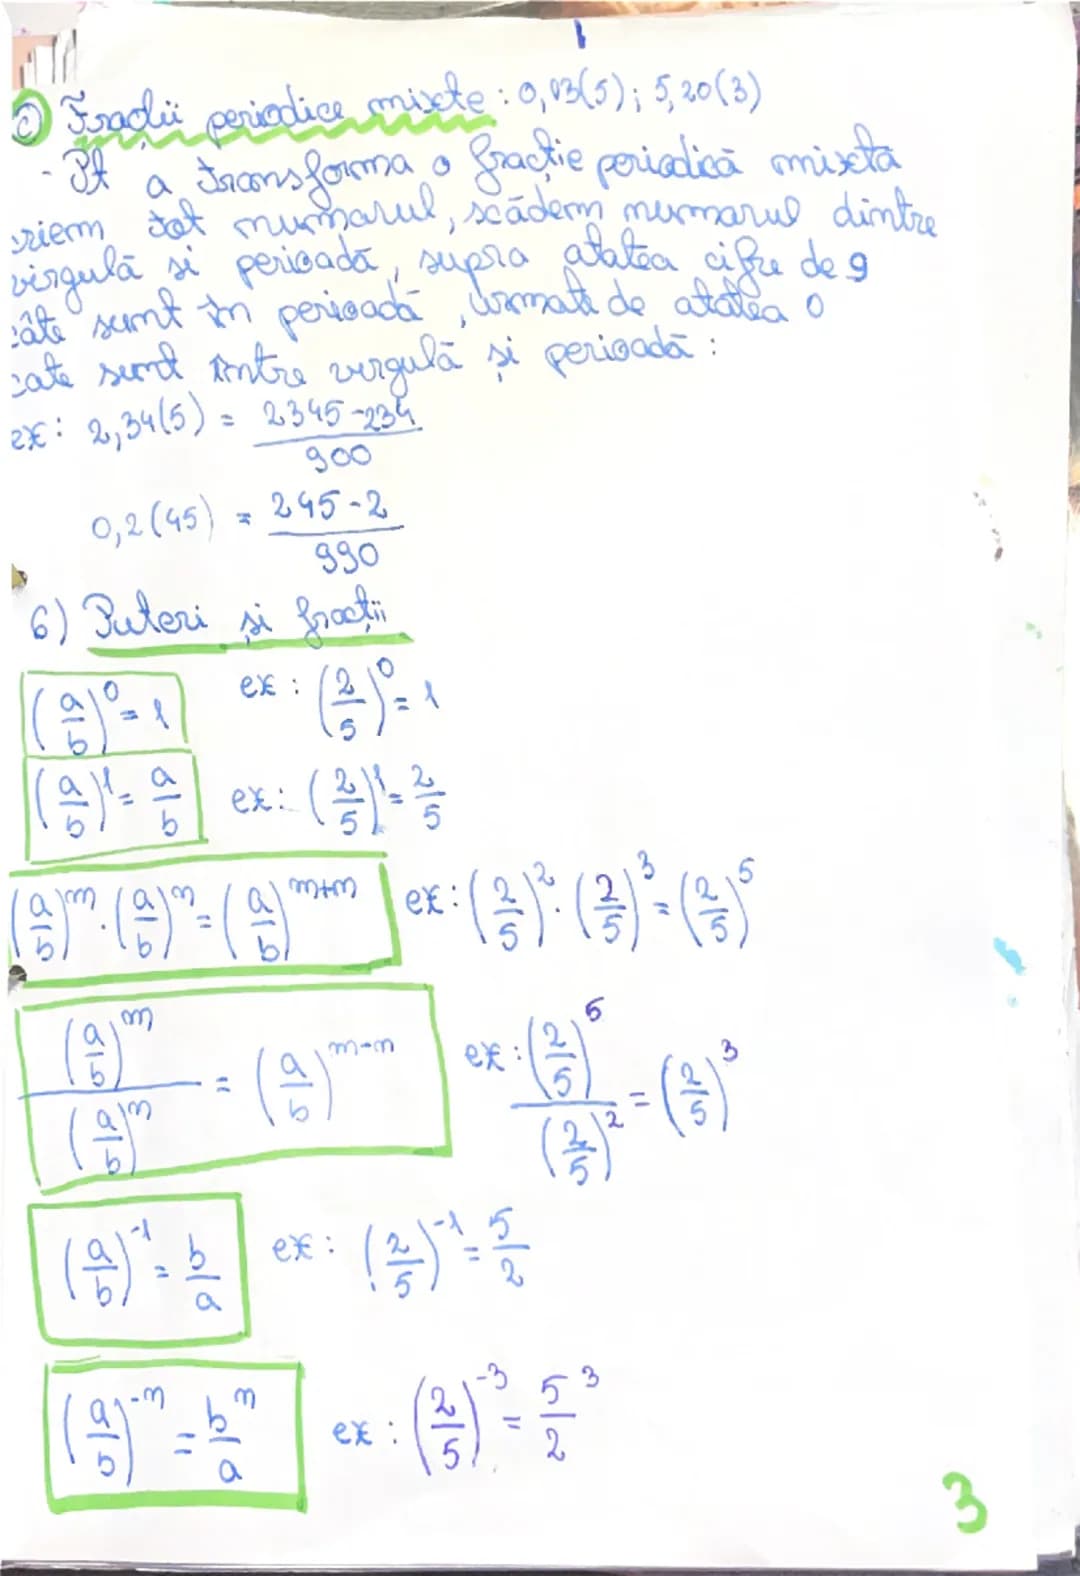 c) Fracții periodice mixte : 0,03(5); 5,20(3)
- Pt a transforma o fracție periodică mixtă
criem tot numarul, scădem numarul dintre
virgulă si perioadă, supra atatea cifre de 9
câte sunt în perioadă, urmate de atâtea 0
cate sunt între virgulă și perioadă :
ex: 2,34(5) = (2345-234)/900
0,2(45) = (245-2)/990
6) Puteri și fracții
(a/b)^0 = 1 ex : (2/5)^0 = 1
(a/b)^1 = a/b ex: (2/5)^1 = 2/5
(a/b)^m · (a/b)^n = (a/b)^(m+n) ex: (2/5)^2 · (2/5)^3 = (2/5)^5
(a/b)^m / (a/b)^n = (a/b)^(m-n) ex: (2/5)^5 / (2/5)^2 = (2/5)^3
(a/b)^-1 = b/a ex: (2/5)^-1 = 5/2
(a/b)^-n = b/a^n ex: (2/5)^-3 = 5/2^3
3